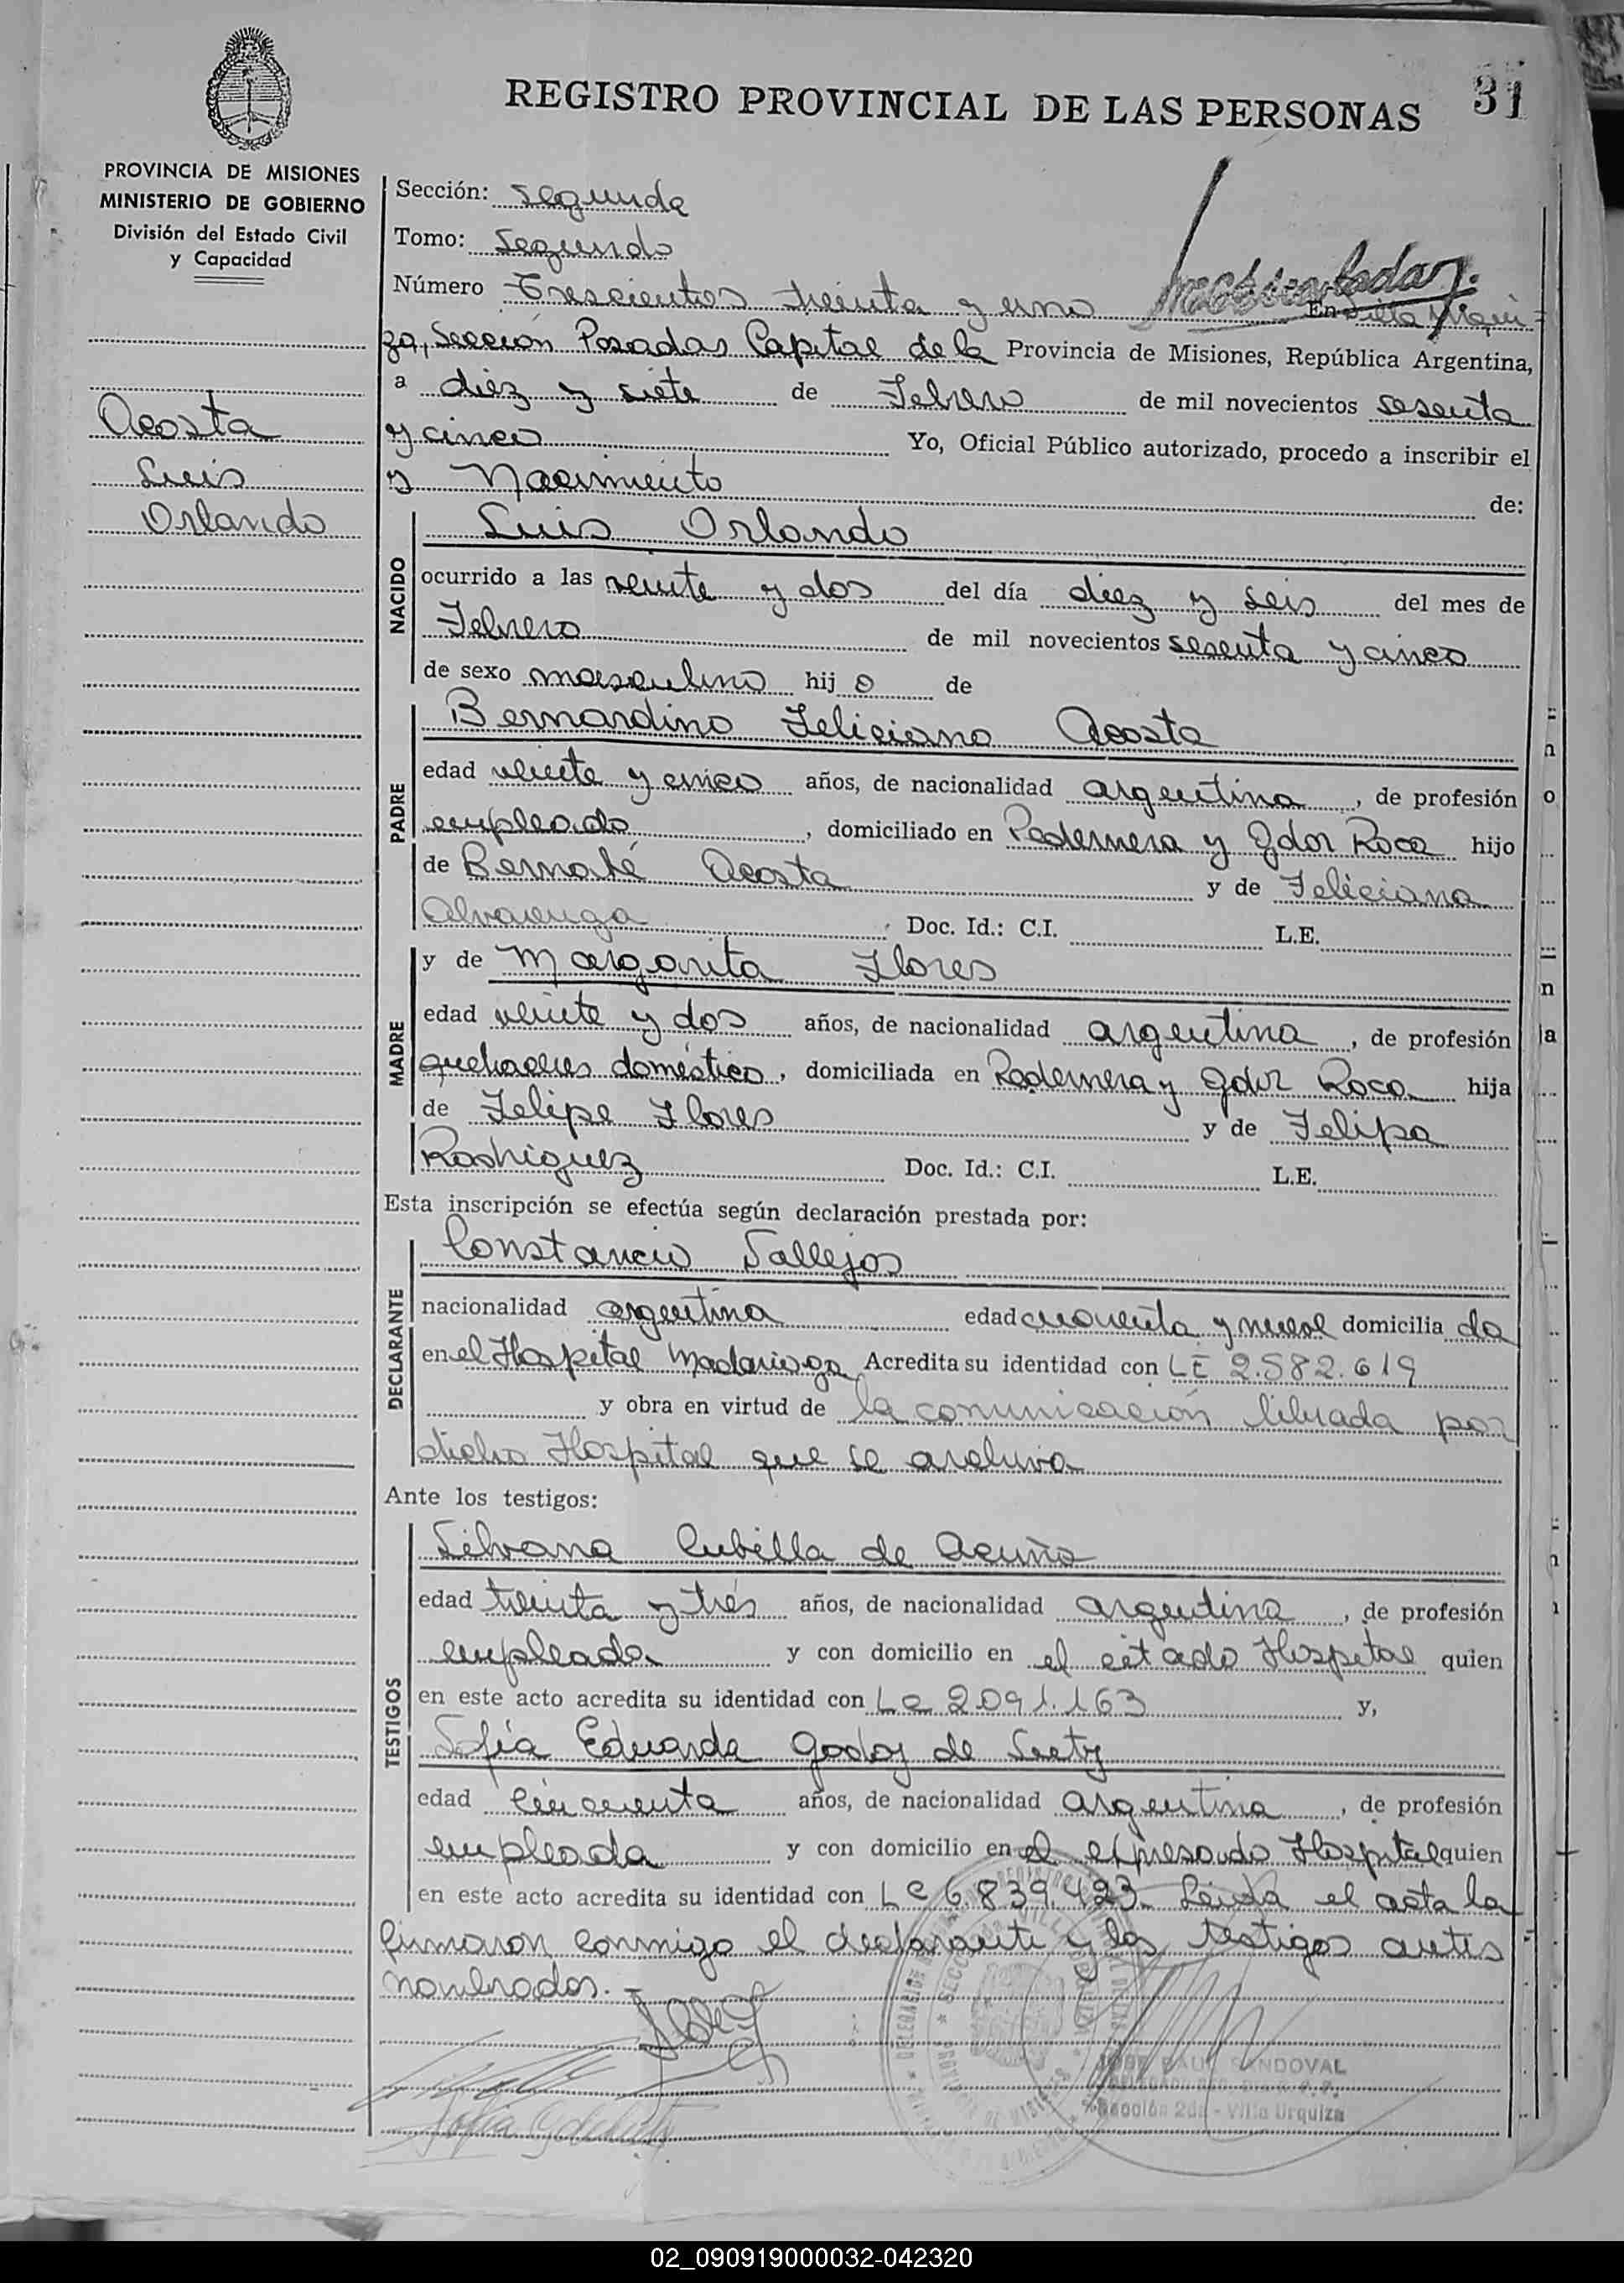 REGISTRO PROVINCIAL DE LAS PERSONAS 31
PROVINCIA DE MISIONES
MINISTERIO DE GOBIERNO
División del Estado Civil
y Capacidad
Acosta
Luis
Orlando
Sección: segunda
Tomo: segundo
Número Trescientos treinta y uno En Villa Urqui
za, Sección Posadas Capital de la Provincia de Misiones, República Argentina,
a diez y siete de Febrero de mil novecientos sesenta
y cinco Yo, Oficial Público autorizado, procedo a inscribir el
Nacimiento de:
NACIDO
Luis Orlando
ocurrido a las veinte y dos del día diez y seis del mes de
Febrero de mil novecientos sesenta y cinco
de sexo masculino hijo de
PADRE
Bernardino Feliciano Acosta
edad veinte y cinco años, de nacionalidad argentina, de profesión
empleado, domiciliado en Pedernera y Gdor Roca hijo
de Bernabé Acosta y de Feliciana
Alvarenga Doc. Id.: C.I. L.E.
MADRE
y de Margarita Flores
edad veinte y dos años, de nacionalidad argentina, de profesión
quehaceres doméstico, domiciliada en Pedernera y Gdor Roca hija
de Felipe Flores y de Felipa
Rodriguez Doc. Id.: C.I. L.E.
Esta inscripción se efectúa según declaración prestada por:
DECLARANTE
Constancio Vallejos
nacionalidad argentina edad cuarenta y nueve domicilia da
en el Hospital Madariaga Acredita su identidad con LE 2.582.619
y obra en virtud de la comunicación librada por
dicho Hospital que se archiva
Ante los testigos:
TESTIGOS
Silvana Cubilla de Acuña
edad treinta y tres años, de nacionalidad argentina, de profesión
empleada y con domicilio en el citado Hospital quien
en este acto acredita su identidad con Lc 2.091.163 y,
Sofía Eduarda Godoy de
edad cincuenta años, de nacionalidad argentina, de profesión
empleada y con domicilio en el expresado Hospital quien
en este acto acredita su identidad con Lc 6.839.423. Leída el acta la
firmaron conmigo el declarante y los testigos antes
nombrados.
JOSE RAUL SANDOVAL
Sección 2da - Villa Urquiza
02_090919000032-042320